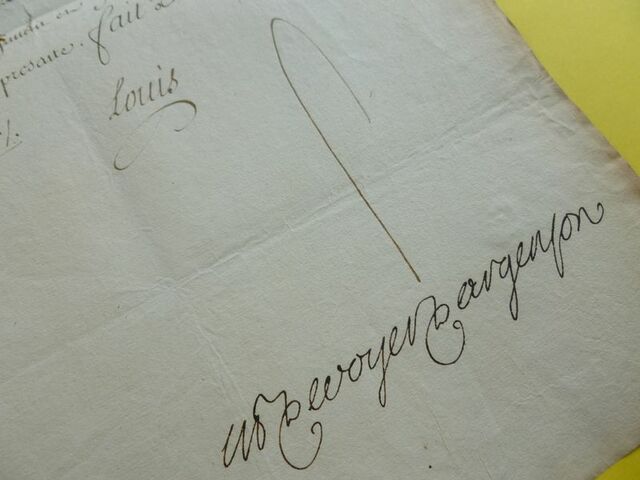 presante. fait a
Louis
M P de voyer D argenson